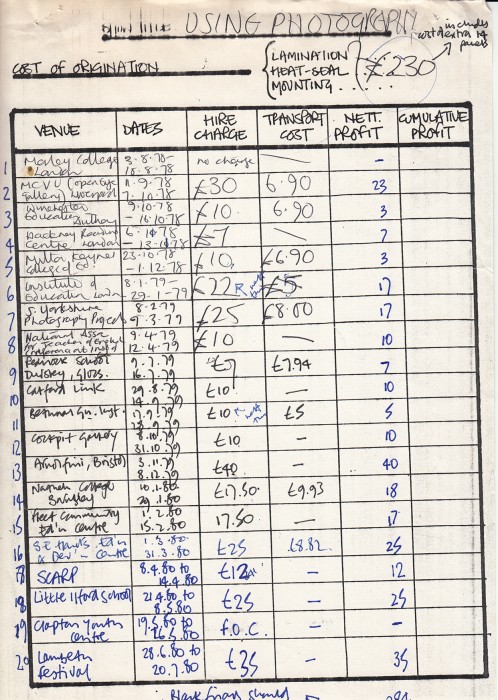 USING PHOTOGRAPHY
includes
cost of extra 14
panels
COST OF ORIGINATION
LAMINATION
HEAT-SEAL
MOUNTING . . . . . .
£230
VENUE DATES HIRE CHARGE TRANSPORT COST NETT. PROFIT CUMULATIVE PROFIT
1 Morley College London 3.8.78- 18.8.78 no charge — -
2 MCVU (open eye Gallery Liverpool 11.9.78 7.10.78 £30 6.90 23
3 Winchester Education Authority 9.10.78 - 16.10.78 £10 6.90 3
4 Hackney Reading Centre, London £7 \ 7
5 Milton Keynes College of Ed. 23.10.78 - 1.12.78 £10 £6.90 3
6 Institute of Education London 8.1.79- 29.1.79 £22 £5 17
7 S. Yorkshire Photography Project 8.2.79 9.3.79 £25 £8.00 17
8 National Assn. for Teachers of English 9.4.79 12.4.79 £10 — 10
9 School Dursley, Glos. 9.7.79 16.7.79 £7.94 7
10 Catford Link 29.8.79 14.9.79 £10 — 10
11 Bethnal Gn. Inst. 17.9.79 £10 £5 5
12 Cockpit Gallery 8.10.79 31.10.79 £10 — 10
13 Arnolfini, Bristol 3.11.79 8.12.79 £40 — 40
14 College Barnsley 10.1.80 29.1.80 £17.50 £9.93 18
15 Fleet Community Ed'n Centre 1.2.80 15.2.80 17.50 — 17
16 Ed'n Dev'n Centre 1.3.80- 31.3.80 £25 £8.82 25
SCARP 8.4.80 to 14.4.80 £12 — 12
18 Little Ilford School 21.4.80 to 8.5.80 £25 — 25
19 Clapton Youth Centre 19.5.80 to 26.5.80 f.o.c. — -
20 Lambeth Festival 28.6.80 to 20.7.80 £35 — 35